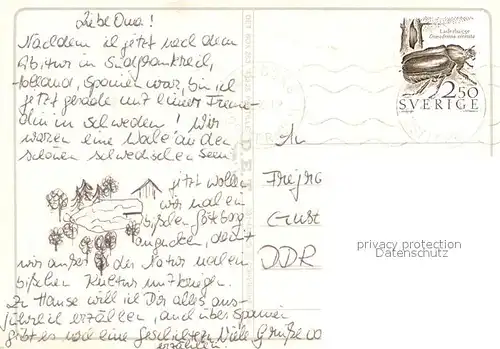 Liebe Oma!
Nachdem ich jetzt nach dem
Abitur in Südfrankreich,
Holland, Spanien war, bin ich
jetzt gerade mit einer Freun-
din in Schweden! Wir
waren eine Woche an den
schönen schwedischen Seen
jetzt wollen
wir mal ein
bißchen Göteborg
angucken, damit
wir außer der Natur mal ein
bißchen Kultur mitkriegen.
Zu Hause will ich Dir alles aus-
führlich erzählen, auch über Spanien
gibt es viel eine Geschichten Viele Grüße
erzählen!
Läderbagge
Osmoderma eremita
2.50
SVERIGE
An
DDR
privacy protection
MA-Shops.com